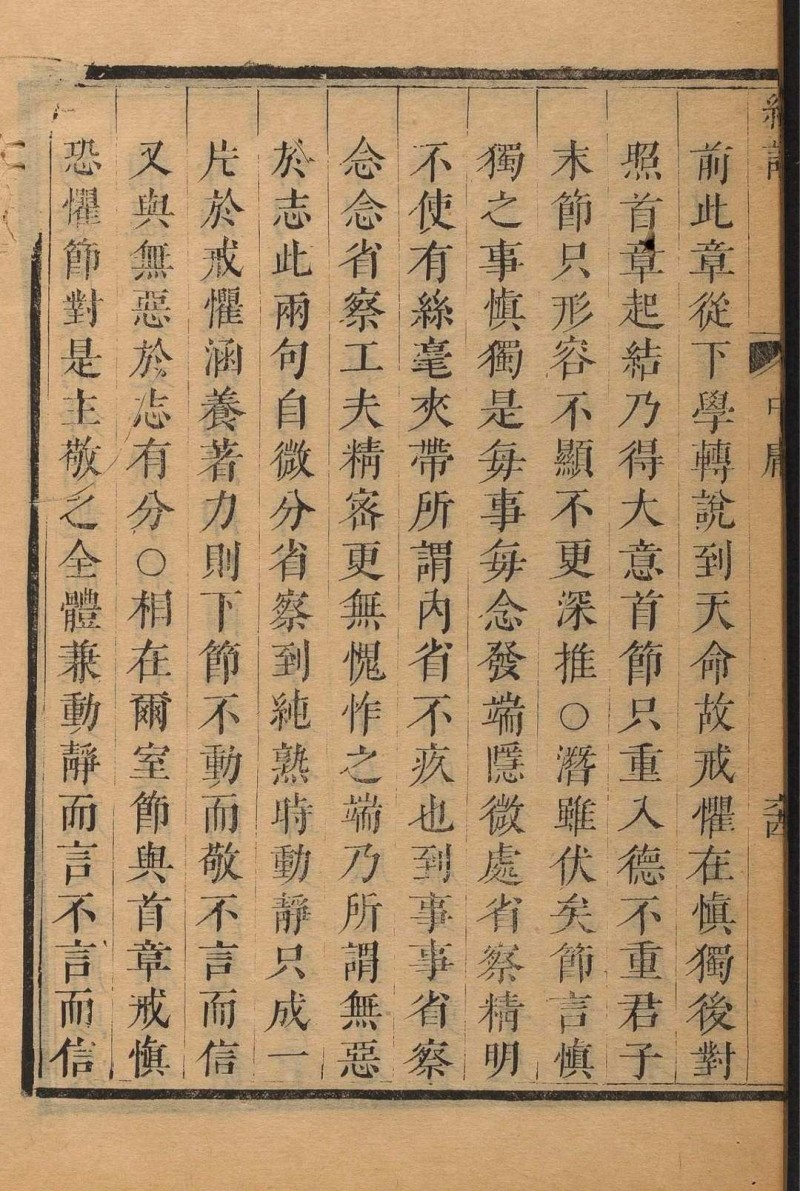 前此章從下學轉說到天命故戒懼在愼獨後對
照首章起結乃得大意首節只重入德不重君子
末節只形容不顯不更深推○潛雖伏矣節言愼
獨之事愼獨是每事每念發端隱微處省察精明
不使有絲毫夾帶所謂內省不疚也到事事省察
念念省察工夫精密更無愧怍之端乃所謂無惡
於志此兩句自微分省察到純熟時動靜只成一
片於戒懼涵養著力則下節不動而敬不言而信
又與無惡於志有分○相在爾室節與首章戒愼
恐懼節對是主敬之全體兼動靜而言不言而信